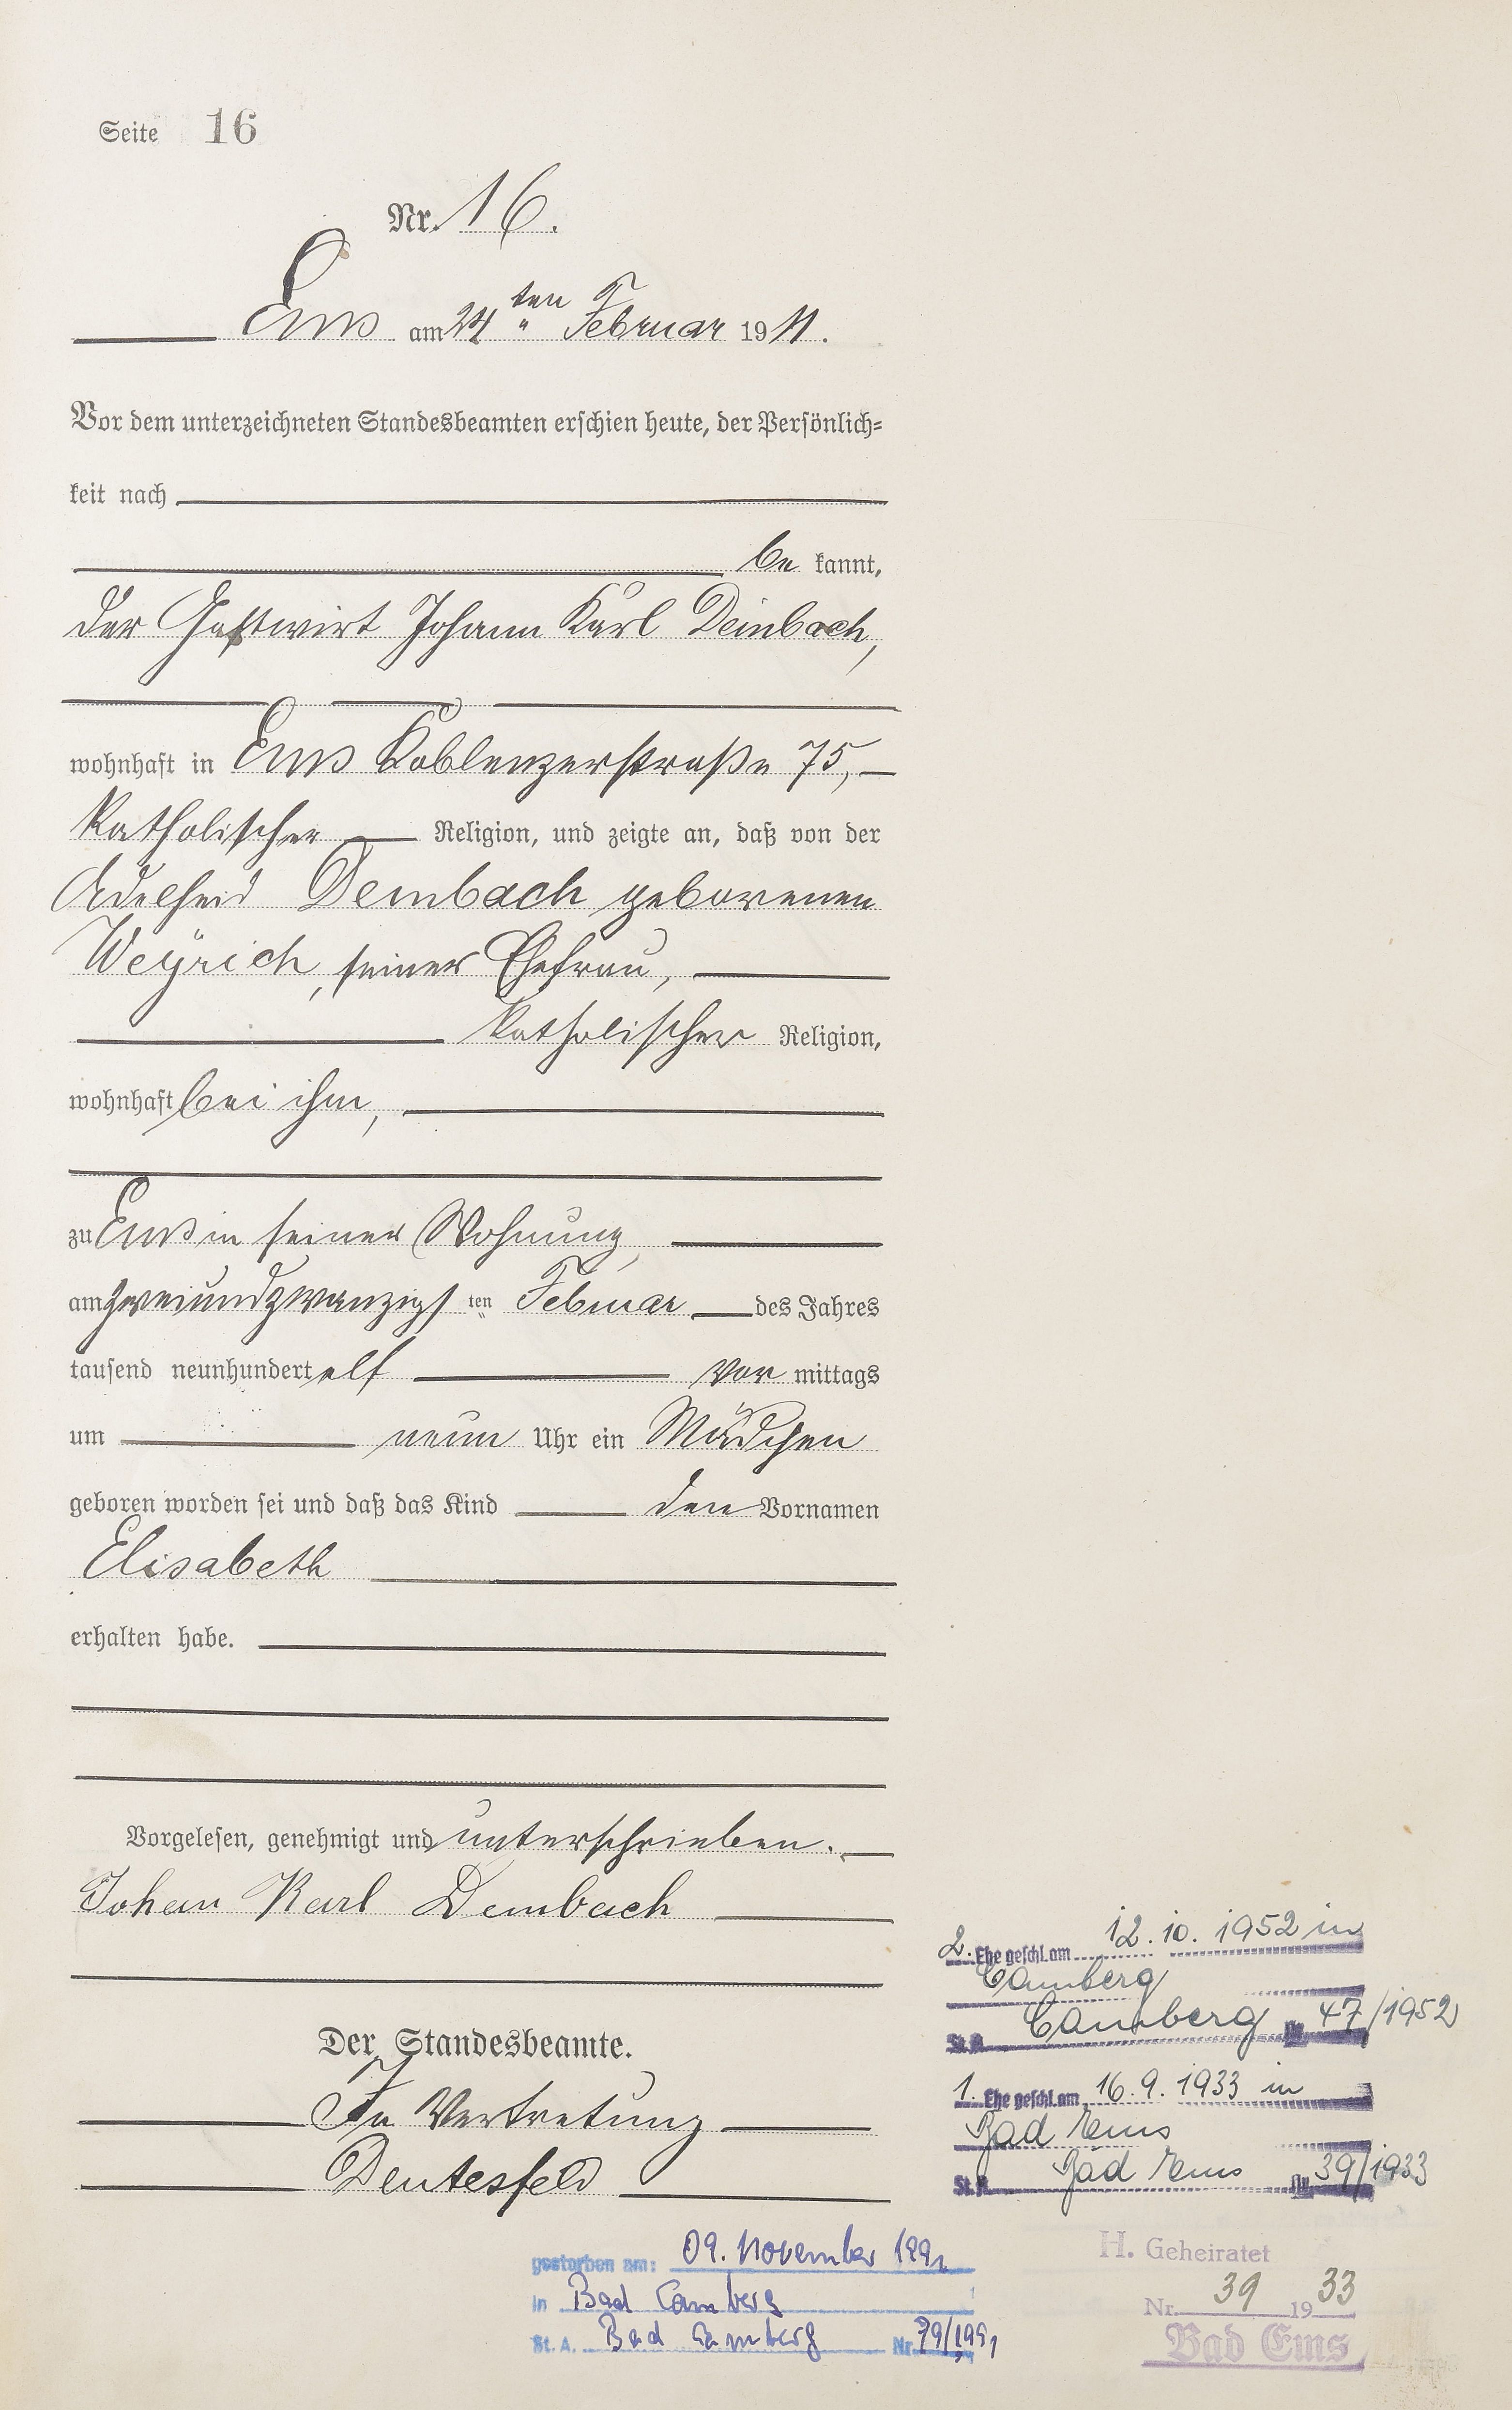 Seite 16
Nr. 16.
Ems am 24ten Februar 1911.
Vor dem unterzeichneten Standesbeamten erschien heute, der Persönlich-
keit nach
be kannt,
der Gastwirt Johann Karl Deinbach,
wohnhaft in Ems Koblenzerstraße 75,
katholischer Religion, und zeigte an, daß von der
Adelheid Deinbach geborenen
Weyrich, seiner Ehefrau,
katholischer Religion,
wohnhaft bei ihm,
zu Ems in seiner Wohnung,
am zweiundzwanzigsten Februar des Jahres
tausend neunhundert elf vor mittags
um neun Uhr ein Mädchen
geboren worden sei und daß das Kind den Vornamen
Elisabeth
erhalten habe.
Vorgelesen, genehmigt und unterschrieben.
Johan Karl Deinbach
Der Standesbeamte.
In Vertretung
Deutesfeld
2. Ehe geschl. am 12. 10. 1952 in
Camberg
St. A. Camberg Nr. 47/1952
1. Ehe geschl. am 16. 9. 1933 in
Bad Ems
St. A. Bad Ems Nr. 39/1933
gestorben am: 09. November 1991
in Bad Camberg
St. A. Bad Camberg Nr. 79/1991
H. Geheiratet
Nr. 39 1933
Bad Ems